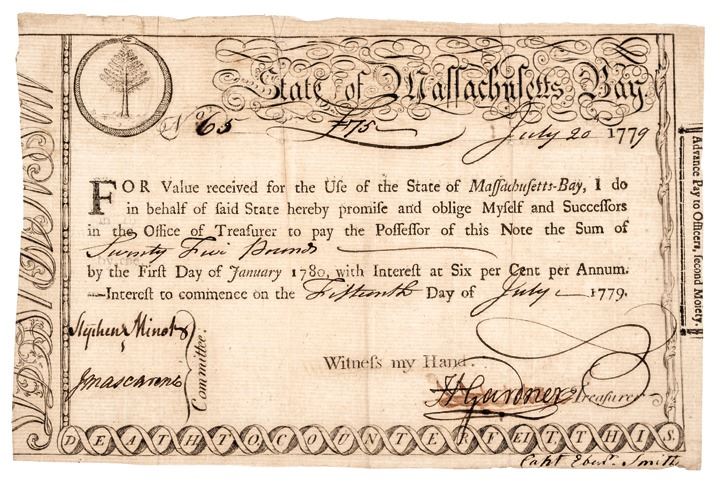 State of Maſſachuſetts Bay
No 65 £75 July 20 1779
FOR Value received for the Uſe of the State of Maſſachuſetts-Bay, I do
in behalf of ſaid State hereby promiſe and oblige Myſelf and Succeſſors
in the Office of Treaſurer to pay the Poſſeſſor of this Note the Sum of
Seventy Five Pounds
by the Firſt Day of January 1780, with Intereſt at Six per Cent per Annum.
—Intereſt to commence on the Fifteenth Day of July 1779.
Stephen Minot
J Mascarene
Committee.
Witneſs my Hand.
H Gardner Treaſurer
DEATH TO COUNTERFEIT THIS.
Capt Ebenr. Smith
Advance Pay to Officers, ſecond Moiety.